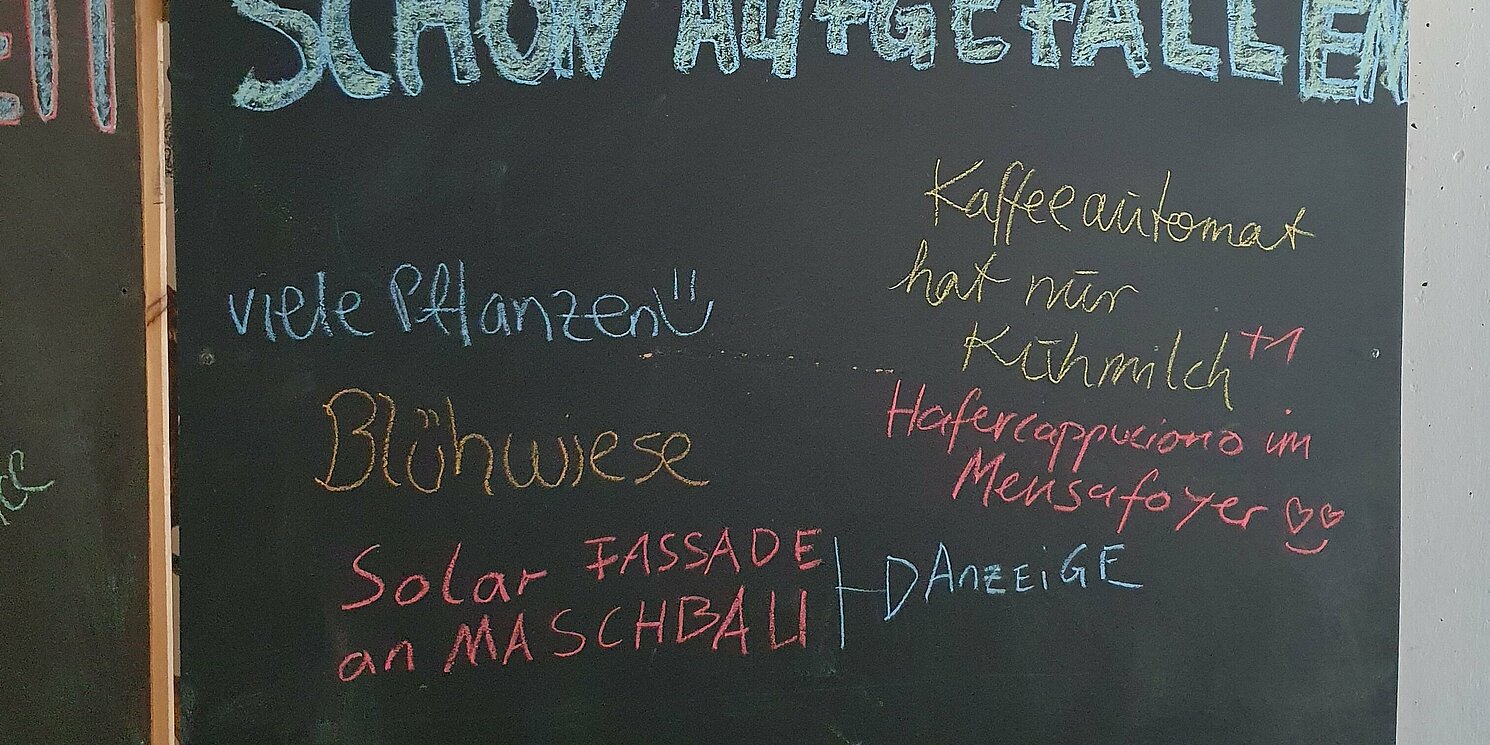 SCHON AUFGEFALLEN
viele Pflanzen
Blühwiese
Solar FASSADE
an MASCHBAU
ANZEIGE
Kaffeeautomat
hat nur
Kuhmilch +1
Hafercappuciono im
Mensafoyer